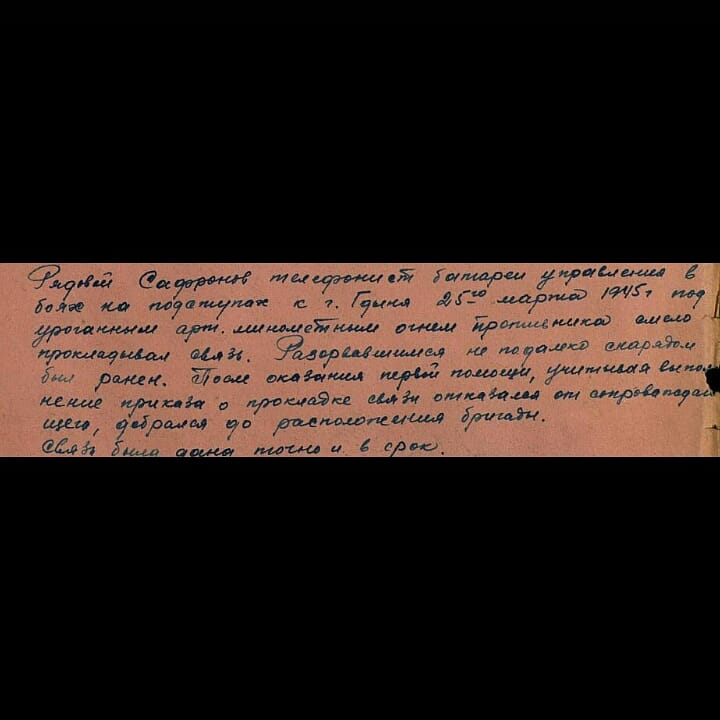 Рядовой Сафронов телефонист батареи управления в
боях на подступах к г. Гдыня 25го марта 1945г под
ураганным арт. минометным огнем противника смело
прокладывал связь. Разорвавшимся не подалеко снарядом
был ранен. После оказания первой помощи, учитывая выпол
нение приказа о прокладке связи отказался от сопровождаю
щего, добрался до расположения бригады.
Связь была дана точно и в срок.